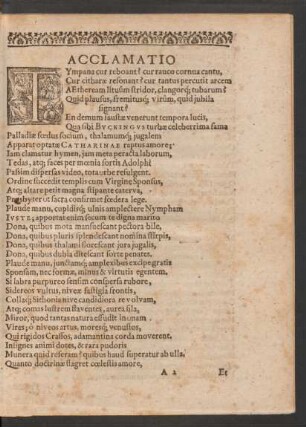 ACCLAMATIO
TYmpana cur reboant? cur rauco cornua cantu,
Cur citharæ resonant? cur tantus percutit arcem
AEtheream lituûm stridor, clangorq; tubarum?
Quid plausus, fremitusq; virûm, quid jubila
signant?
En demum faustæ venerunt tempora lucis,
Qua sibi BVCKINGVS turbæ celeberrima fama
Palladiæ fœdus socium, thalamumq; jugalem
Apparat optatæ CATHARINAE raptus amore;
Iam clamatur hymen, jam meta peracta laborum,
Tedas, atq; faces per mœnia fortis Adolphi
Passim dispersas video, tota urbe refulgent.
Ordine succedit templis cum Virgine Sponsus,
Atq; altare petit magna stipante caterva,
Presbyter ut sacra confirmet fœdera lege.
Plaude manu, cupidisq; ulnis amplectere Nympham
IVSTE; apportat enim secum te digna marito
Dona, quibus mota mansuescant pectora bile,
Dona, quibus pluris splendescant nomina stirpis,
Dona, quibus thalami florescant jora jugalis,
Dona, quibus dubia ditescant sorte penates.
Plaude manu, junctamq; amplexibus excipe gratis
Sponsam, nec formæ, minus & virtutis egentem.
Si labra purpureo sensim conspersa rubore,
Sidereos vultus, niveæ fastigia frontis,
Collaq; Sithonia nive candidiora revolvam,
Atq; comas lustrem flaventes, aurea fila,
Miror, quod tantas natura effudit in unam
Vires; ô niveos artus, moresq; venustos,
Qui rigidos Crassos, adamantina corda moverent.
Insignes animi dotes, & rara pudoris
Munera quid referam? quibus haud superatur ab ulla,
Quanto doctrinæ flagret cœlestis amore,
A 2 Et